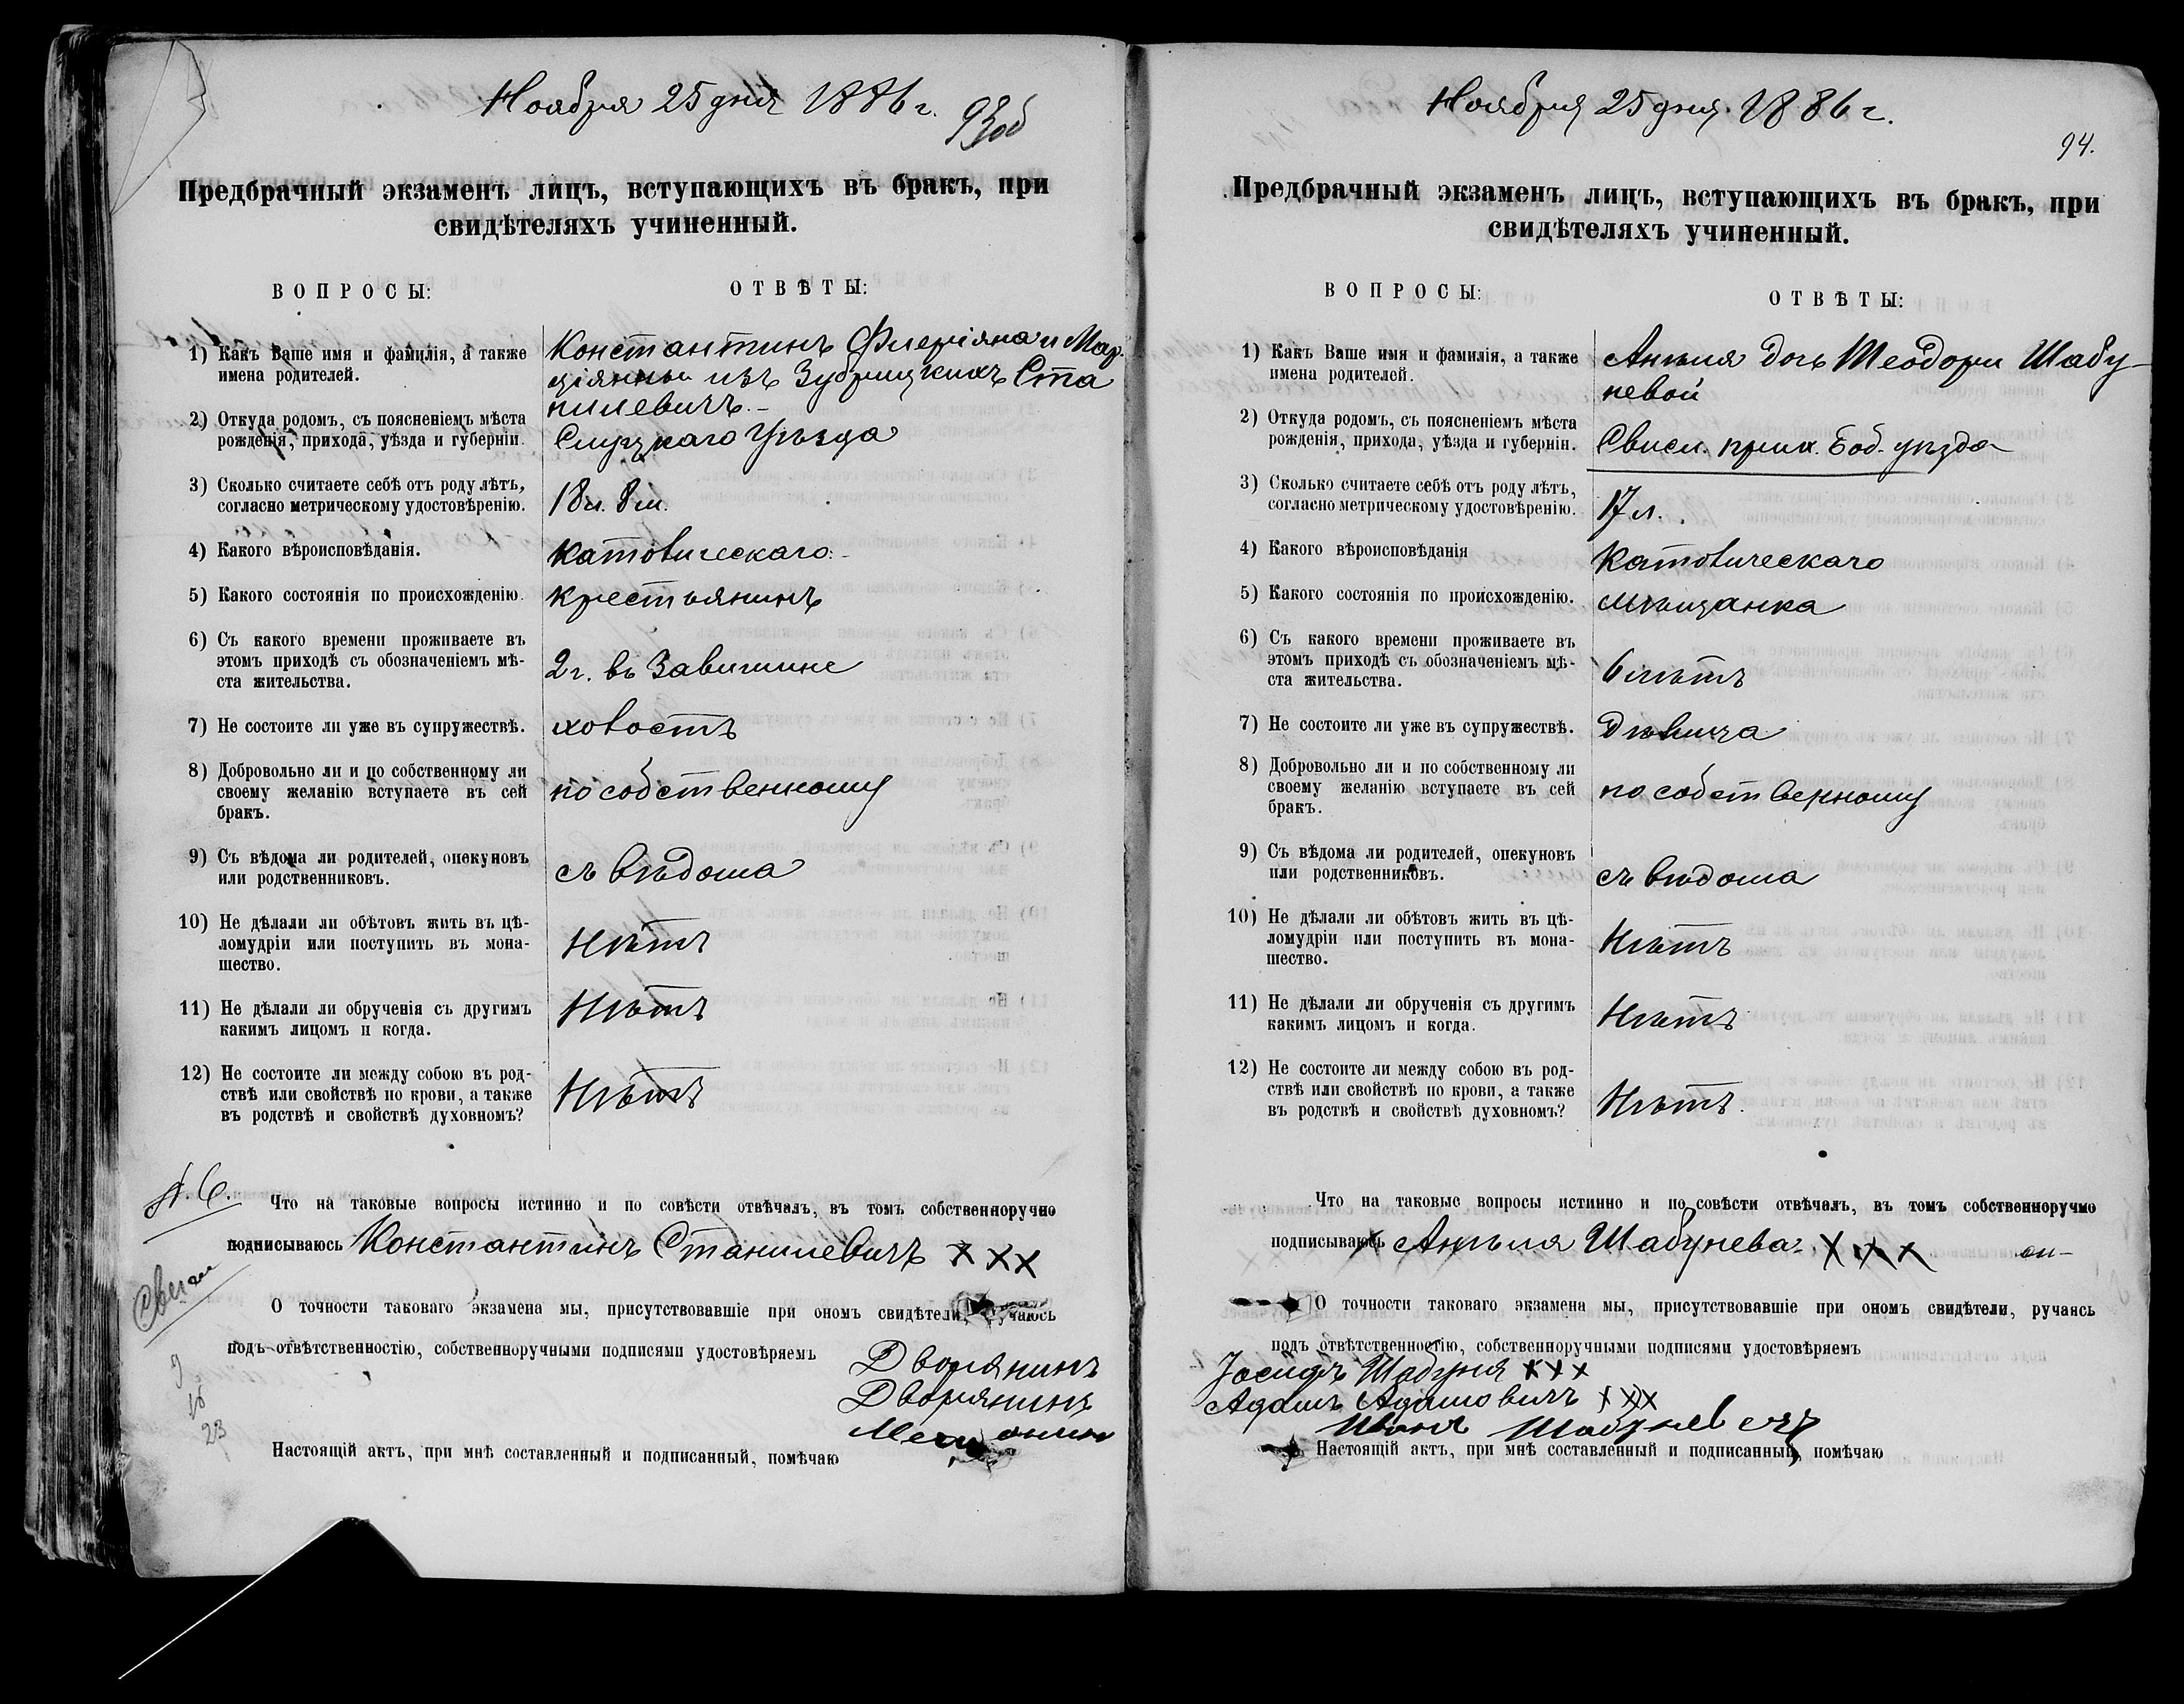 Ноября 25 дня 1886 г.
93об
Предбрачный экзаменъ лицъ, вступающихъ въ бракъ, при
свидѣтеляхъ учиненный.
ВОПРОСЫ:
ОТВѢТЫ:
1) Какъ Ваше имя и фамилія, а также
имена родителей.
Константинъ Флеріяна и Мар-
ціянны изъ Зубрицкихъ Ста
нилевичъ.-
2) Откуда родомъ, съ поясненіемъ мѣста
рожденія, прихода, уѣзда и губерніи.
Слуцкаго Уѣзда
3) Сколько считаете себѣ отъ роду лѣтъ,
согласно метрическому удостовѣренію.
18 л. 8 м.
4) Какого вѣроисповѣданія.
Католическаго.-
5) Какого состоянія по происхожденію.
крестьянинъ
6) Съ какого времени проживаете въ
этомъ приходѣ съ обозначеніемъ мѣ-
ста жительства.
2 г. въ
7) Не состоите ли уже въ супружествѣ.
холостъ
8) Добровольно ли и по собственному ли
своему желанію вступаете въ сей
бракъ.
по собственному
9) Съ вѣдома ли родителей, опекуновъ
или родственниковъ.
съ вѣдома
10) Не дѣлали ли обѣтовъ жить въ цѣ-
ломудріи или поступить въ мона-
шество.
Нѣтъ
11) Не дѣлали ли обрученія съ другимъ
какимъ лицомъ и когда.
Нѣтъ
12) Не состоите ли между собою въ род-
ствѣ или свойствѣ по крови, а также
въ родствѣ и свойствѣ духовномъ?
Нѣтъ
Что на таковые вопросы истинно и по совѣсти отвѣчалъ, въ томъ собственноручно
подписываюсь Константинъ Станилевичъ XXX
О точности таковаго экзамена мы, присутствовавшіе при ономъ свидѣтели, ручаюсь
подъ отвѣтственностію, собственноручными подписями удостовѣряемъ
Дворянинъ
Дворянинъ
9
16
23
Настоящій актъ, при мнѣ составленный и подписанный, помѣчаю
Ноября 25 дня 1886 г.
94.
Предбрачный экзаменъ лицъ, вступающихъ въ бракъ, при
свидѣтеляхъ учиненный.
ВОПРОСЫ:
ОТВѢТЫ:
1) Какъ Ваше имя и фамилія, а также
имена родителей.
Анѣля дочь Теодоры Шабу-
невой
2) Откуда родомъ, съ поясненіемъ мѣста
рожденія, прихода, уѣзда и губерніи.
Свисл. прих. Боб. уѣзда
3) Сколько считаете себѣ отъ роду лѣтъ,
согласно метрическому удостовѣренію.
17 л.
4) Какого вѣроисповѣданія
Католическаго
5) Какого состоянія по происхожденію.
мѣщанка
6) Съ какого времени проживаете въ
этомъ приходѣ съ обозначеніемъ мѣ-
ста жительства.
6 лѣтъ
7) Не состоите ли уже въ супружествѣ.
Дѣвица
8) Добровольно ли и по собственному ли
своему желанію вступаете въ сей
бракъ.
по собственному
9) Съ вѣдома ли родителей, опекуновъ
или родственниковъ.
съ вѣдома
10) Не дѣлали ли обѣтовъ жить въ цѣ-
ломудріи или поступить въ мона-
шество.
Нѣтъ
11) Не дѣлали ли обрученія съ другимъ
какимъ лицомъ и когда.
Нѣтъ
12) Не состоите ли между собою въ род-
ствѣ или свойствѣ по крови, а также
въ родствѣ и свойствѣ духовномъ?
Нѣтъ.
Что на таковые вопросы истинно и по совѣсти отвѣчалъ, въ томъ собственноручно
подписываюсь Анѣля Шабунева XXX
О точности таковаго экзамена мы, присутствовавшіе при ономъ свидѣтели, ручаясь
подъ отвѣтственностію, собственноручными подписями удостовѣряемъ
Іосифъ Шабуня XXX
Адамъ Адамовичъ XXX
Иванъ Шабуневичъ
Настоящій актъ, при мнѣ составленный и подписанный, помѣчаю